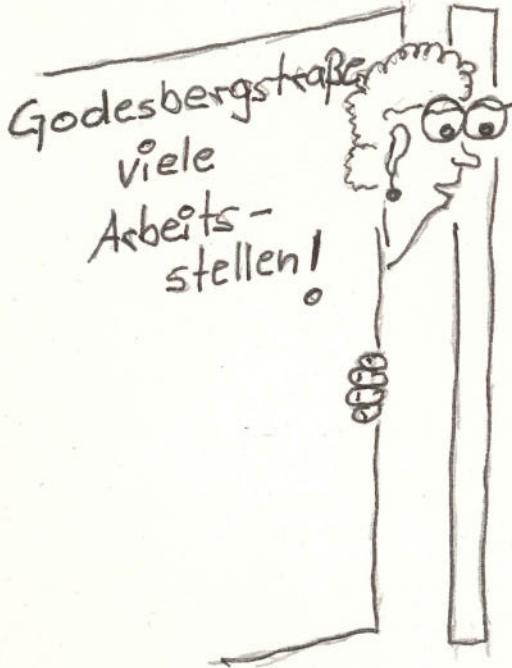 Godesbergstraße
viele
Arbeits-
stellen!